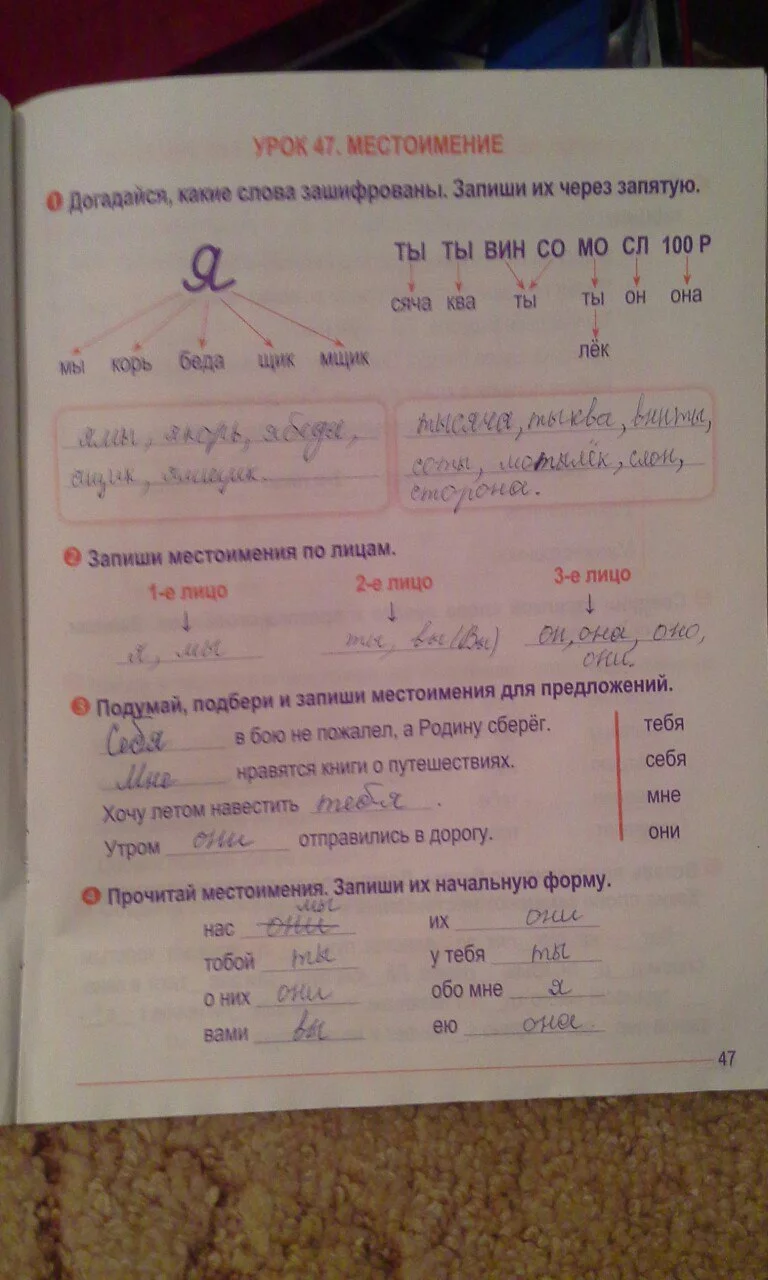 УРОК 47. МЕСТОИМЕНИЕ
1 Догадайся, какие слова зашифрованы. Запиши их через запятую.
Я
мы корь беда щик мщик
ТЫ ТЫ ВИН СО МО СЛ 100 Р
сяча ква ты ты он она
лёк
ямы, якорь, ябеда,
ящик, ямщик.
тысяча, тыква, винты,
соты, мотылёк, слон,
сторона.
2 Запиши местоимения по лицам.
1-е лицо 2-е лицо 3-е лицо
я, мы ты, вы (Вы) он, она, оно,
они.
3 Подумай, подбери и запиши местоимения для предложений.
Себя в бою не пожалел, а Родину сберёг. тебя
Мне нравятся книги о путешествиях. себя
Хочу летом навестить тебя. мне
Утром они отправились в дорогу. они
4 Прочитай местоимения. Запиши их начальную форму.
мы
нас они их они
тобой ты у тебя ты
о них они обо мне я
вами вы ею она.
47